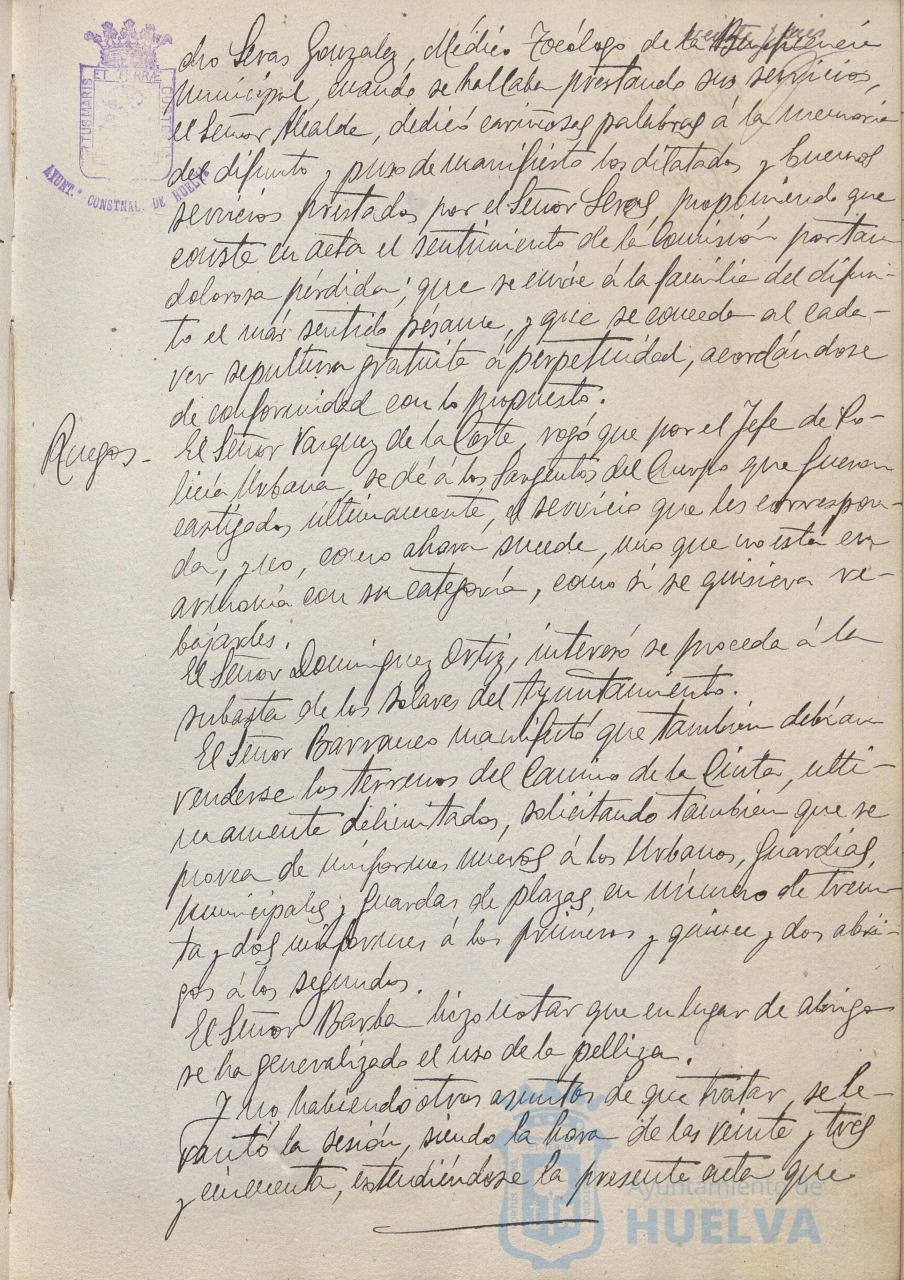 dro Seras Gonzalez, Médico Tocólogo de la Beneficencia
Municipal, cuando se hallaba prestando sus servicios,
el Señor Alcalde, dedicó cariñosas palabras á la memoria
del difunto y puso de manifiesto los dilatados y buenos
servicios prestados por el Señor Seras, proponiendo que
conste en acta el sentimiento de la Comisión por tan
dolorosa pérdida; que se envie á la familia del difun-
to el más sentido pésame, y que se conceda al cada-
ver sepultura gratuita á perpetuidad, acordándose
de conformidad con lo propuesto.
Ruegos.- El Señor Vazquez de la Corte, rogó que por el Jefe de Po-
licía Urbana, se dé á los Sargentos del Cuerpo que fueran
castigados últimamente, el servicio que les correspon-
da, y no, como ahora sucede, uno que no esta en
armonía con su categoría, como si se quisiera re-
bajarles.
El Señor Dominguez Ortiz, interesó se proceda á la
subasta de los solares del Ayuntamiento.
El Señor Barranco manifestó que también debían
venderse los terrenos del Camino de la Cinta, ulti-
mamente delimitados, solicitando también que se
provea de uniformes nuevos á los Urbanos, Guardias
Municipales y Guardas de plazas, en número de trein-
ta y dos uniformes á los primeros y quince y dos abri-
gos á los segundos.
El Señor Barba hizo notar que en lugar de abrigo
se ha generalizado el uso de la pelliza.
Y no habiendo otros asuntos de que tratar, se le-
vantó la sesión, siendo la hora de las veinte y tres
y cincuenta, extendiéndose la presente acta que
PORTUS MARIS ET TERRÆ CUSTODIA
AYUNT.º CONSTNAL. DE HUELVA
Ayuntamiento de
HUELVA